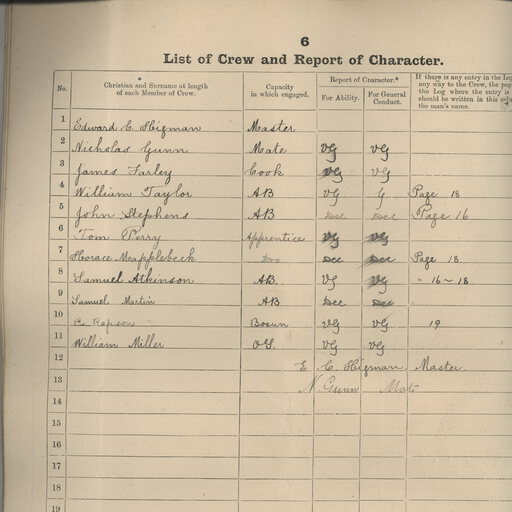 6
List of Crew and Report of Character.
No.
* Christian and Surname at length of each Member of Crew.
Capacity in which engaged.
Report of Character.*
For Ability.
For General Conduct.
If there is any entry in the Log
any way to the Crew, the page
the Log where the entry is
should be written in this
the man's name.
1 Edward C. Higman Master
2 Nicholas Gunn Mate VG VG
3 James Farley Cook VG VG
4 William Taylor AB VG G Page 18
5 John Stephens AB Dec Dec Page 16
6 Tom Perry Apprentice VG VG
7 Horace Mapplebeck Do Dec Dec Page 18
8 Samuel Atkinson AB. VG VG " 16 ~ 18
9 Samuel Martin AB Dec Dec
10 Rapson Bosun VG VG 19
11 William Miller OS. VG VG
12 E. C. Higman, Master
13 N Gunn Mate
14
15
16
17
18
19